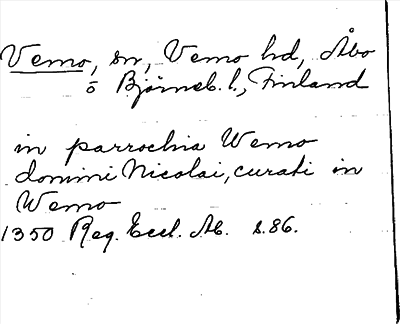 Vemo, sn, Vemo hd, Åbo
o Björneb. l., Finland
in parrochia Wemo
domini Nicolai, curati in
Wemo
1350 Reg. Eccl. Ab. s. 86.